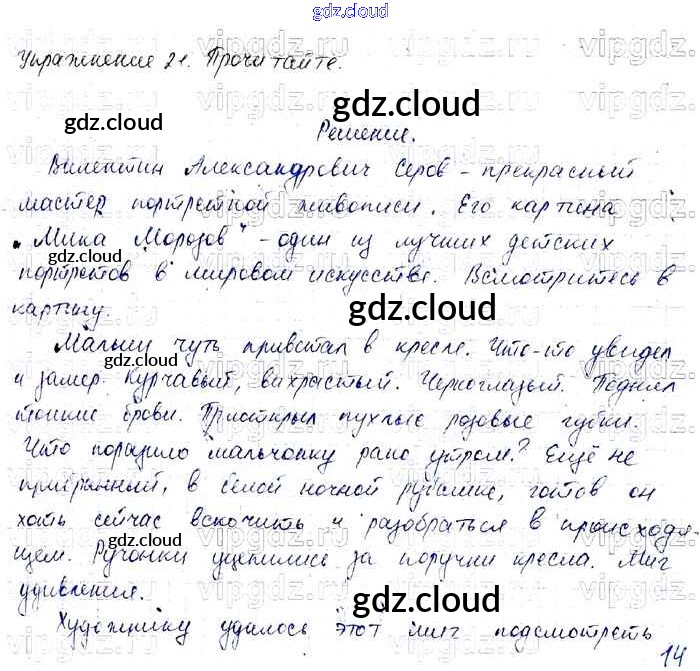 gdz.cloud
Упражнение 21. Прочитайте.
Решение.
Валентин Александрович Серов - прекрасный
мастер портретной живописи. Его картина
"Мика Морозов" - один из лучших детских
портретов в мировом искусстве. Всмотритесь в
картину.
Малыш чуть привстал в кресле. Что-то увидел
и замер. Курчавый, вихрастый. Черноглазый. Поднял
тонкие брови. Приоткрыл пухлые розовые губки.
Что поразило мальчонку рано утром? Ещё не
прибранный, в белой ночной рубашке, готов он
хоть сейчас вскочить и разобраться в происходя-
щем. Ручонки уцепились за поручни кресла. Миг
удивления.
Художнику удалось этот миг подсмотреть
14